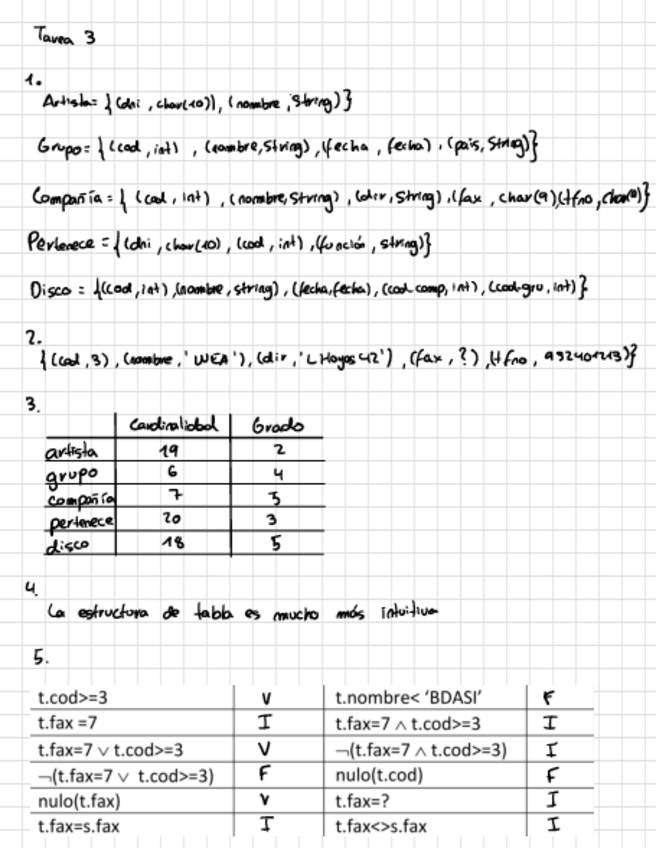 Tarea 3
1.
Artista= {(dni, char(10)), (nombre, string)}
Grupo= {(cod, int), (nombre, String), (fecha, fecha), (pais, String)}
Compañía= { (cod, int), (nombre, String), (dir, String), (fax, char(9), (tfno, char(9)}
Pertenece = {(dni, char(10), (cod, int), (función, string)}
Disco = {(cod, int), (nombre, string), (fecha, fecha), (cod_comp, int), (cod_gru, int)}
2.
{(cod, 3), (nombre, 'WEA'), (dir, 'L Hoyos 42'), (fax, ?), (tfno, 932401213)}
3.
Cardinalidad Grado
artista 19 2
grupo 6 4
compañía 7 5
pertenece 20 3
disco 18 5
4.
La estructura de tabla es mucho más intuitiva
5.
t.cod>=3 V t.nombre< 'BDASI' F
t.fax =7 I t.fax=7 ∧ t.cod>=3 I
t.fax=7 ∨ t.cod>=3 V ¬(t.fax=7 ∧ t.cod>=3) I
¬(t.fax=7 ∨ t.cod>=3) F nulo(t.cod) F
nulo(t.fax) V t.fax=? I
t.fax=s.fax I t.fax<>s.fax I